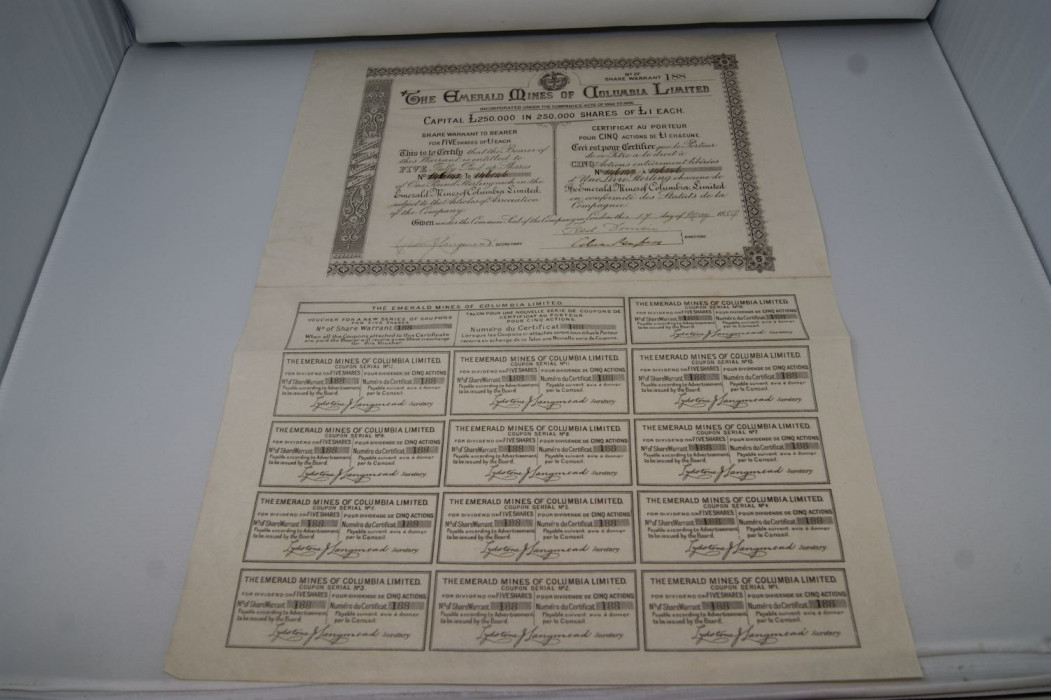 Nº OF
SHARE WARRANT 188
THE EMERALD MINES OF COLUMBIA LIMITED
INCORPORATED UNDER THE COMPANIES ACTS
CAPITAL £250,000 IN 250,000 SHARES OF £1 EACH.
SHARE WARRANT TO BEARER
FOR FIVE SHARES OF £1 EACH
This is to Certify that the Bearer of
this Warrant is entitled to
FIVE Fully Paid up Shares
Nº to
of One Pound Sterling each in the
Emerald Mines of Columbia Limited,
subject to the Articles of Association
of the Company.
CERTIFICAT AU PORTEUR
POUR CINQ ACTIONS DE £1 CHACUNE.
Ceci est pour Certifier que le Porteur
de ce Titre a le droit à
CINQ Actions entièrement libérées
Nº à
d'Une Livre Sterling chacune de
The Emerald Mines of Columbia Limited
en conformité des Statuts de la
Compagnie.
Given under the Common Seal of the Company in London this 17 day of
SECRETARY
DIRECTORS
THE EMERALD MINES OF COLUMBIA LIMITED.
VOUCHER FOR A NEW SERIES OF COUPONS
FOR FIVE SHARES
Nº of Share Warrant 188
When all the Coupons attached to this Certificate
are paid the Bearer will receive a new Sheet in exchange
for this Voucher.
TALON POUR UNE NOUVELLE SÉRIE DE COUPONS DE
CERTIFICAT AU PORTEUR
POUR CINQ ACTIONS.
Numéro du Certificat 188
Lorsque les Coupons ci attachés seront tous échus le Porteur
recevra en échange de ce Talon une Nouvelle série de Coupons.
THE EMERALD MINES OF COLUMBIA LIMITED.
FOR DIVIDEND ON FIVE SHARES POUR DIVIDENDE DE CINQ ACTIONS
Nº of Share Warrant 188 Numéro du Certificat 188
Payable according to Advertisement Payable suivant avis à donner
to be issued by the Board. par le Conseil.
Lydstone J Langmead Secretary
THE EMERALD MINES OF COLUMBIA LIMITED.
COUPON SERIAL Nº12.
FOR DIVIDEND ON FIVE SHARES POUR DIVIDENDE DE CINQ ACTIONS
Nº of Share Warrant 188 Numéro du Certificat 188
Payable according to Advertisement Payable suivant avis à donner
to be issued by the Board. par le Conseil.
Lydstone J Langmead Secretary
THE EMERALD MINES OF COLUMBIA LIMITED.
COUPON SERIAL Nº11.
FOR DIVIDEND ON FIVE SHARES POUR DIVIDENDE DE CINQ ACTIONS
Nº of Share Warrant 188 Numéro du Certificat 188
Payable according to Advertisement Payable suivant avis à donner
to be issued by the Board. par le Conseil.
Lydstone J Langmead Secretary
THE EMERALD MINES OF COLUMBIA LIMITED.
COUPON SERIAL Nº10.
FOR DIVIDEND ON FIVE SHARES POUR DIVIDENDE DE CINQ ACTIONS
Nº of Share Warrant 188 Numéro du Certificat 188
Payable according to Advertisement Payable suivant avis à donner
to be issued by the Board. par le Conseil.
Lydstone J Langmead Secretary
THE EMERALD MINES OF COLUMBIA LIMITED.
COUPON SERIAL Nº9.
FOR DIVIDEND ON FIVE SHARES POUR DIVIDENDE DE CINQ ACTIONS
Nº of Share Warrant 188 Numéro du Certificat 188
Payable according to Advertisement Payable suivant avis à donner
to be issued by the Board. par le Conseil.
Lydstone J Langmead Secretary
THE EMERALD MINES OF COLUMBIA LIMITED.
COUPON SERIAL Nº8.
FOR DIVIDEND ON FIVE SHARES POUR DIVIDENDE DE CINQ ACTIONS
Nº of Share Warrant 188 Numéro du Certificat 188
Payable according to Advertisement Payable suivant avis à donner
to be issued by the Board. par le Conseil.
Lydstone J Langmead Secretary
THE EMERALD MINES OF COLUMBIA LIMITED.
COUPON SERIAL Nº7.
FOR DIVIDEND ON FIVE SHARES POUR DIVIDENDE DE CINQ ACTIONS
Nº of Share Warrant 188 Numéro du Certificat 188
Payable according to Advertisement Payable suivant avis à donner
to be issued by the Board. par le Conseil.
Lydstone J Langmead Secretary
THE EMERALD MINES OF COLUMBIA LIMITED.
COUPON SERIAL
FOR DIVIDEND ON FIVE SHARES POUR DIVIDENDE DE CINQ ACTIONS
Nº of Share Warrant 188 Numéro du Certificat 188
Payable according to Advertisement Payable suivant avis à donner
to be issued by the Board. par le Conseil.
Lydstone J Langmead Secretary
THE EMERALD MINES OF COLUMBIA LIMITED.
COUPON SERIAL Nº5.
FOR DIVIDEND ON FIVE SHARES POUR DIVIDENDE DE CINQ ACTIONS
Nº of Share Warrant 188 Numéro du Certificat 188
Payable according to Advertisement Payable suivant avis à donner
to be issued by the Board. par le Conseil.
Lydstone J Langmead Secretary
THE EMERALD MINES OF COLUMBIA LIMITED.
COUPON SERIAL Nº4.
FOR DIVIDEND ON FIVE SHARES POUR DIVIDENDE DE CINQ ACTIONS
Nº of Share Warrant 188 Numéro du Certificat 188
Payable according to Advertisement Payable suivant avis à donner
to be issued by the Board. par le Conseil.
Lydstone J Langmead Secretary
THE EMERALD MINES OF COLUMBIA LIMITED.
COUPON SERIAL Nº3.
FOR DIVIDEND ON FIVE SHARES POUR DIVIDENDE DE CINQ ACTIONS
Nº of Share Warrant 188 Numéro du Certificat 188
Payable according to Advertisement Payable suivant avis à donner
to be issued by the Board. par le Conseil.
Lydstone J Langmead Secretary
THE EMERALD MINES OF COLUMBIA LIMITED.
COUPON SERIAL Nº2.
FOR DIVIDEND ON FIVE SHARES POUR DIVIDENDE DE CINQ ACTIONS
Nº of Share Warrant 188 Numéro du Certificat 188
Payable according to Advertisement Payable suivant avis à donner
to be issued by the Board. par le Conseil.
Lydstone J Langmead Secretary
THE EMERALD MINES OF COLUMBIA LIMITED.
COUPON SERIAL Nº1.
FOR DIVIDEND ON FIVE SHARES POUR DIVIDENDE DE CINQ ACTIONS
Nº of Share Warrant 188 Numéro du Certificat 188
Payable according to Advertisement Payable suivant avis à donner
to be issued by the Board. par le Conseil.
Lydstone J Langmead Secretary